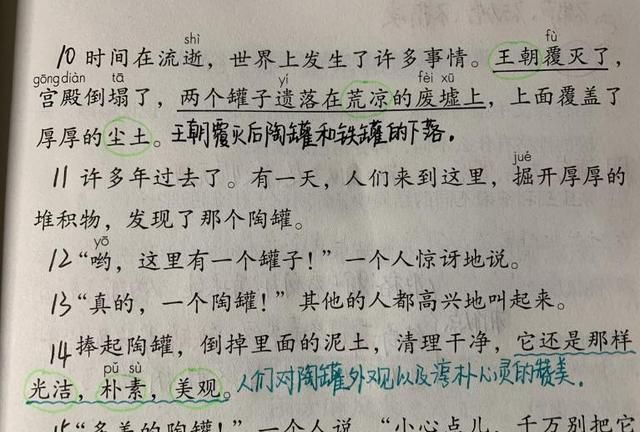 shì fù
10 时间在流逝，世界上发生了许多事情。王朝覆灭了，
gōng diàn tā yí fèi xū
宫殿倒塌了，两个罐子遗落在荒凉的废墟上，上面覆盖了
厚厚的尘土。王朝覆灭后陶罐和铁罐的下落。
jué
11 许多年过去了。有一天，人们来到这里，掘开厚厚的
堆积物，发现了那个陶罐。
yō
12 “哟，这里有一个罐子！”一个人惊讶地说。
13 “真的，一个陶罐！”其他的人都高兴地叫起来。
14 捧起陶罐，倒掉里面的泥土，清理干净，它还是那样
pǔ sù
光洁，朴素，美观。人们对陶罐外观以及淳朴心灵的赞美。
15 “多美的陶罐！”一个人说，“小心点儿，千万别把它